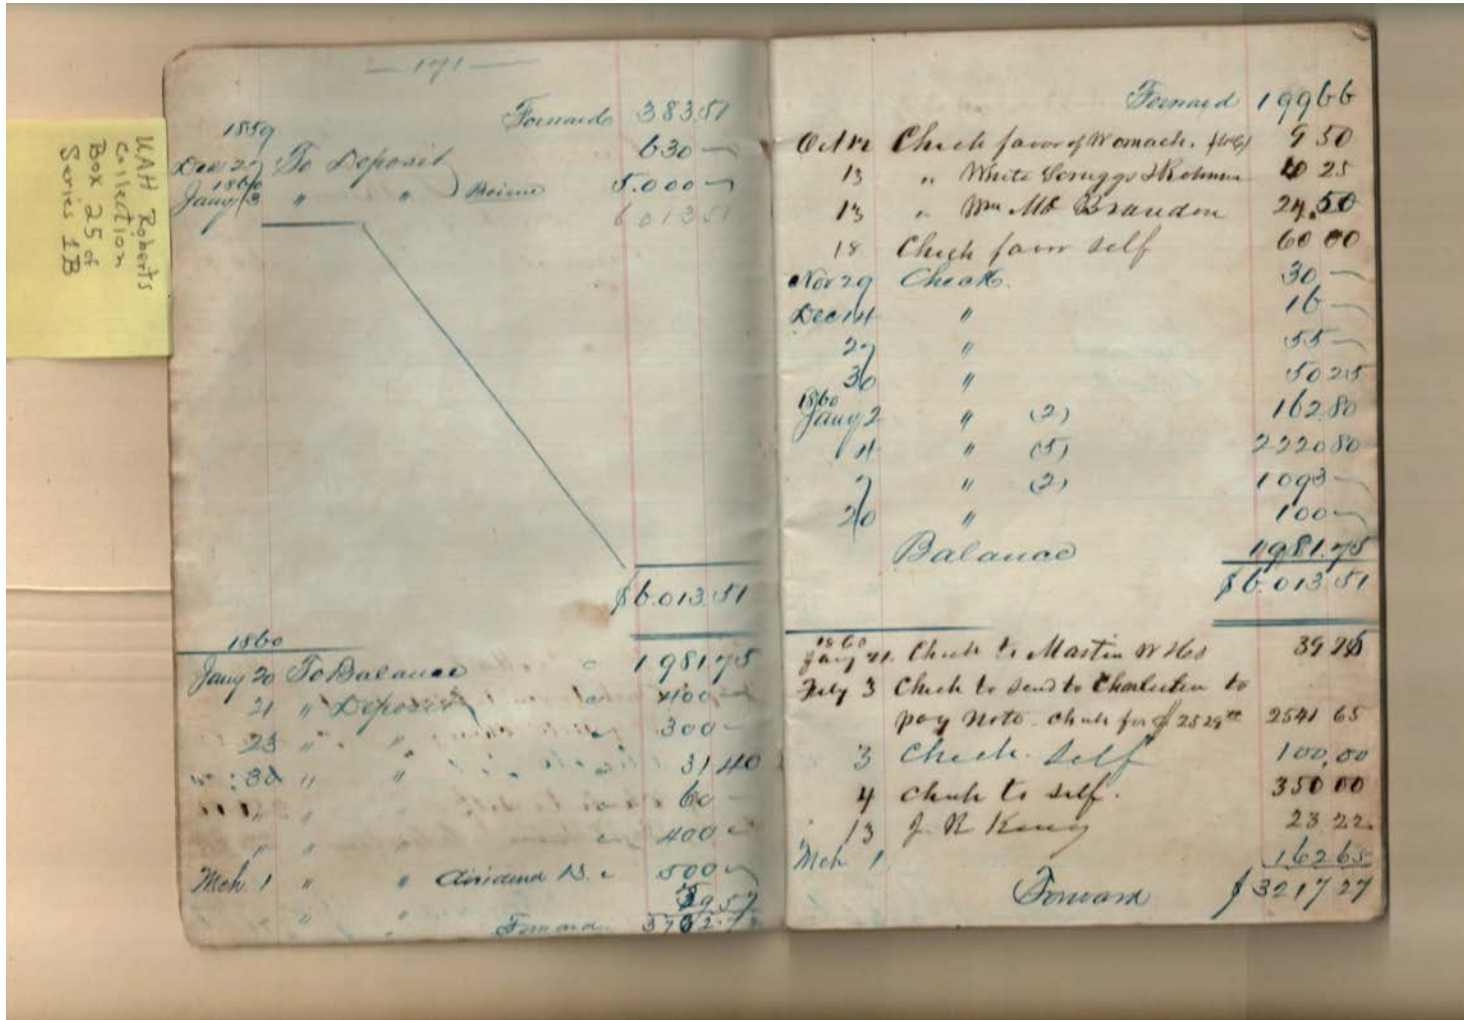 UAH Roberts
Collection
Box 25 of
Series 1B
171
Forward 383.51
1859
Dec 27 To Deposit 630 —
1860
Jany 3 " " Beirne 5.000 —
6 013 51
$6.013.51
1860
Jany 20 To Balance 1.981.75
21 " Deposit 400 —
23 " " 300 —
30 " " 31 40
" " 60 —
" " 400 —
Mch 1 " " dividend 500 —
" "
Forward
Forward 199 66
Oct 12 Check favor of Womack. 9 50
13 " White Scruggs & 10 25
13 " Wm Mc Brandon 24.50
18 Check favor self 60 00
Nov 29 Check. 30 —
Dec 14 " 16 —
27 " 55 —
30 " 50 25
1860
Jany 2 " (2) 162.80
4 " (5) 2220 80
7 " (2) 1093 —
20 " 100 —
Balance 1981.75
$6.013.51
1860
Jany 21. Check to Martin W & Co 39
Feby 3 Check to send to Charleston to
pay Note. Check for $2529 2541 65
3 Check. Self 100,00
4 Check to self. 350 00
13 J. R King 23 22
Mch 1 162 65
Forward $3217 27